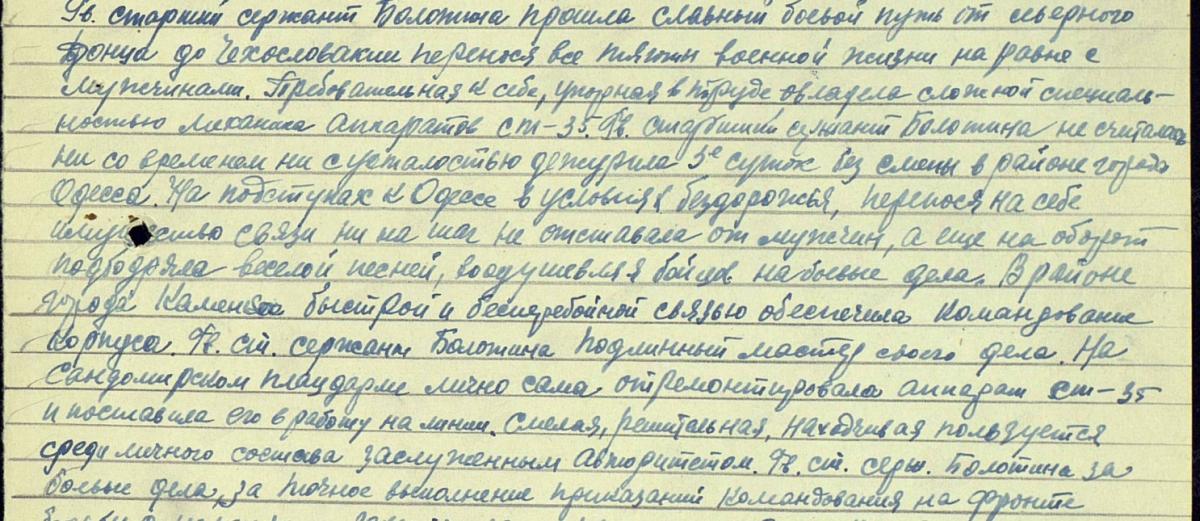 Гв. старший сержант Болотина прошла славный боевой путь от северного
Донца до Чехословакии перенося все тяготы военной жизни на равне с
мужчинами. Требовательная к себе, упорная в труде овладела сложной специаль-
ностью механика аппаратов ст-35. Гв. старший сержант Болотина не считалась
ни со временем ни с усталостью дежурила 3е суток без смены в районе города
Одесса. На подступах к Одессе в условиях бездорожья, перенося на себе
имущество связи ни на шаг не отставала от мужчин, а еще на оборот
подбодряла веселой песней, воодушевляя бойцов на боевые дела. В районе
города быстрой и бесперебойной связью обеспечила командование
корпуса. Гв. ст. сержант Болотина подлинный мастер своего дела. На
Сандомирском плацдарме лично сама отремонтировала аппарат ст-35
и поставила его в работу на линии. Смелая, решительная, находчивая пользуется
среди личного состава заслуженным авторитетом. Гв. ст. серж. Болотина за
боевые дела, за точное выполнение приказаний командования на фронте